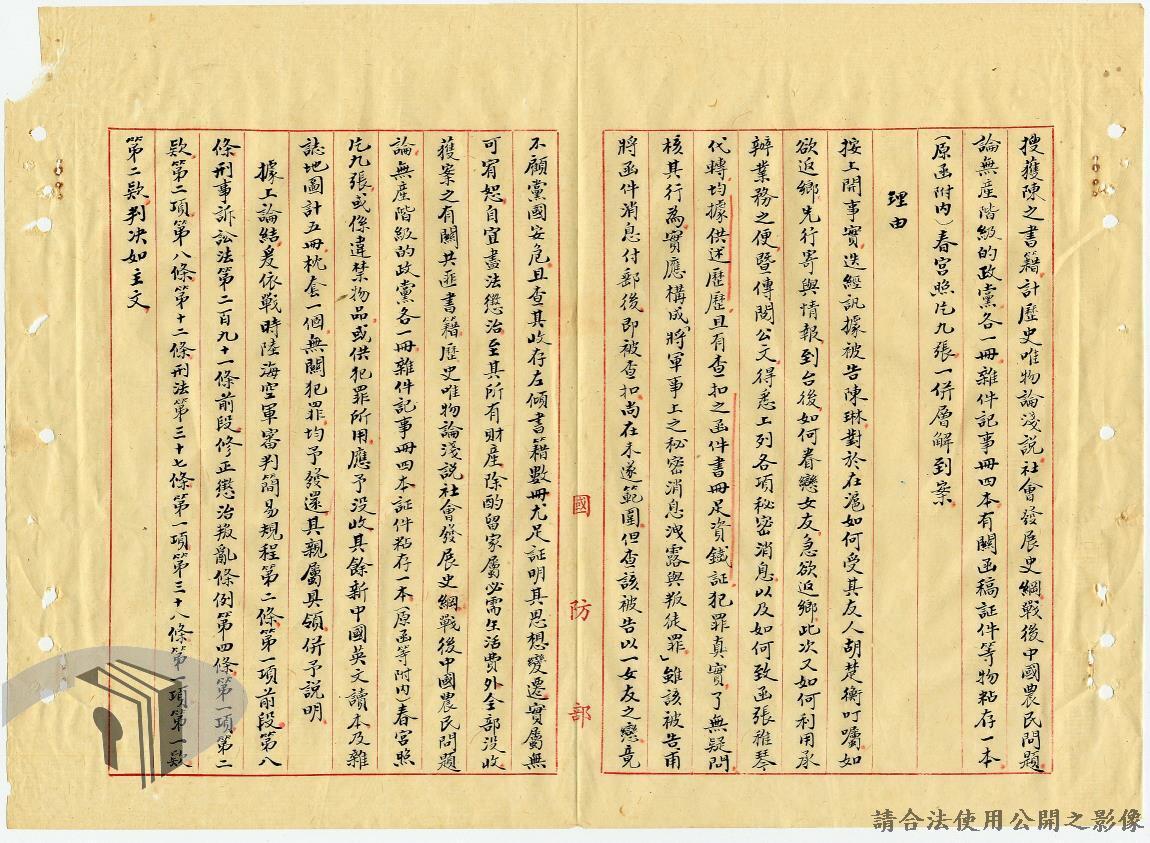 搜獲陳之書籍計歷史唯物論淺說社會發展史綱戰後中國農民問題
論無産階級的政黨各一冊雜件記事冊四本有關函稿証件等物粘存一本
(原函附內)春宮照片九張一併層解到案
理由
按上開事實迭經訊據被告陳琳對於在滬如何受其友人胡楚衡叮囑如
欲返鄉先行寄與情報到台後如何眷戀女友急欲返鄉此次又如何利用承
辦業務之便暨傳閱公文得悉上列各項秘密消息以及如何致函張稚琴
代轉均據供述歷歷且有查扣之函件書冊足資鐵証犯罪真實了無疑問
核其行為實應構成「將軍事上之秘密消息洩露與叛徒罪」雖該被告甫
將函件消息付郵後即被查扣尚在未遂範圍但查該被告以一女友之戀竟
國防部
不顧黨國安危且查其收存左傾書籍數冊尤足証明其思想變遷實屬無
可宥恕自宜盡法懲治至其所有財産除酌留家屬必需生活費外全部沒收
獲案之有關共匪書籍歷史唯物論淺說社會發展史綱戰後中國農民問題
論無産階級的政黨各一冊雜件記事冊四本証件粘存一本(原函等附內春宮照
片九張或係違禁物品或供犯罪所用應予沒收其餘新中國英文讀本及雜
誌地圖計五冊枕套一個無關犯罪均予發還其親屬具領併予説明
據上論結爰依戰時陸海空軍審判簡易規程第二條第一項前段第八
條刑事訴訟法第二百九十一條前段修正懲治叛亂條例第四條第一項第二
款第二項第八條第十二條刑法第三十七條第一項第三十八條第一項第一款
第二款判決如主文
請合法使用公開之影像